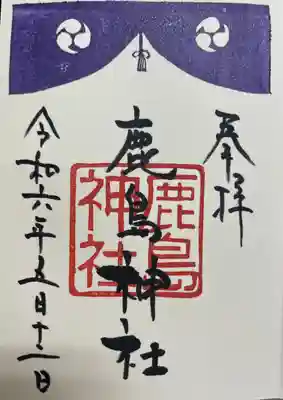 奉拝
鹿島神社
鹿島
神社
令和六年五月十一日